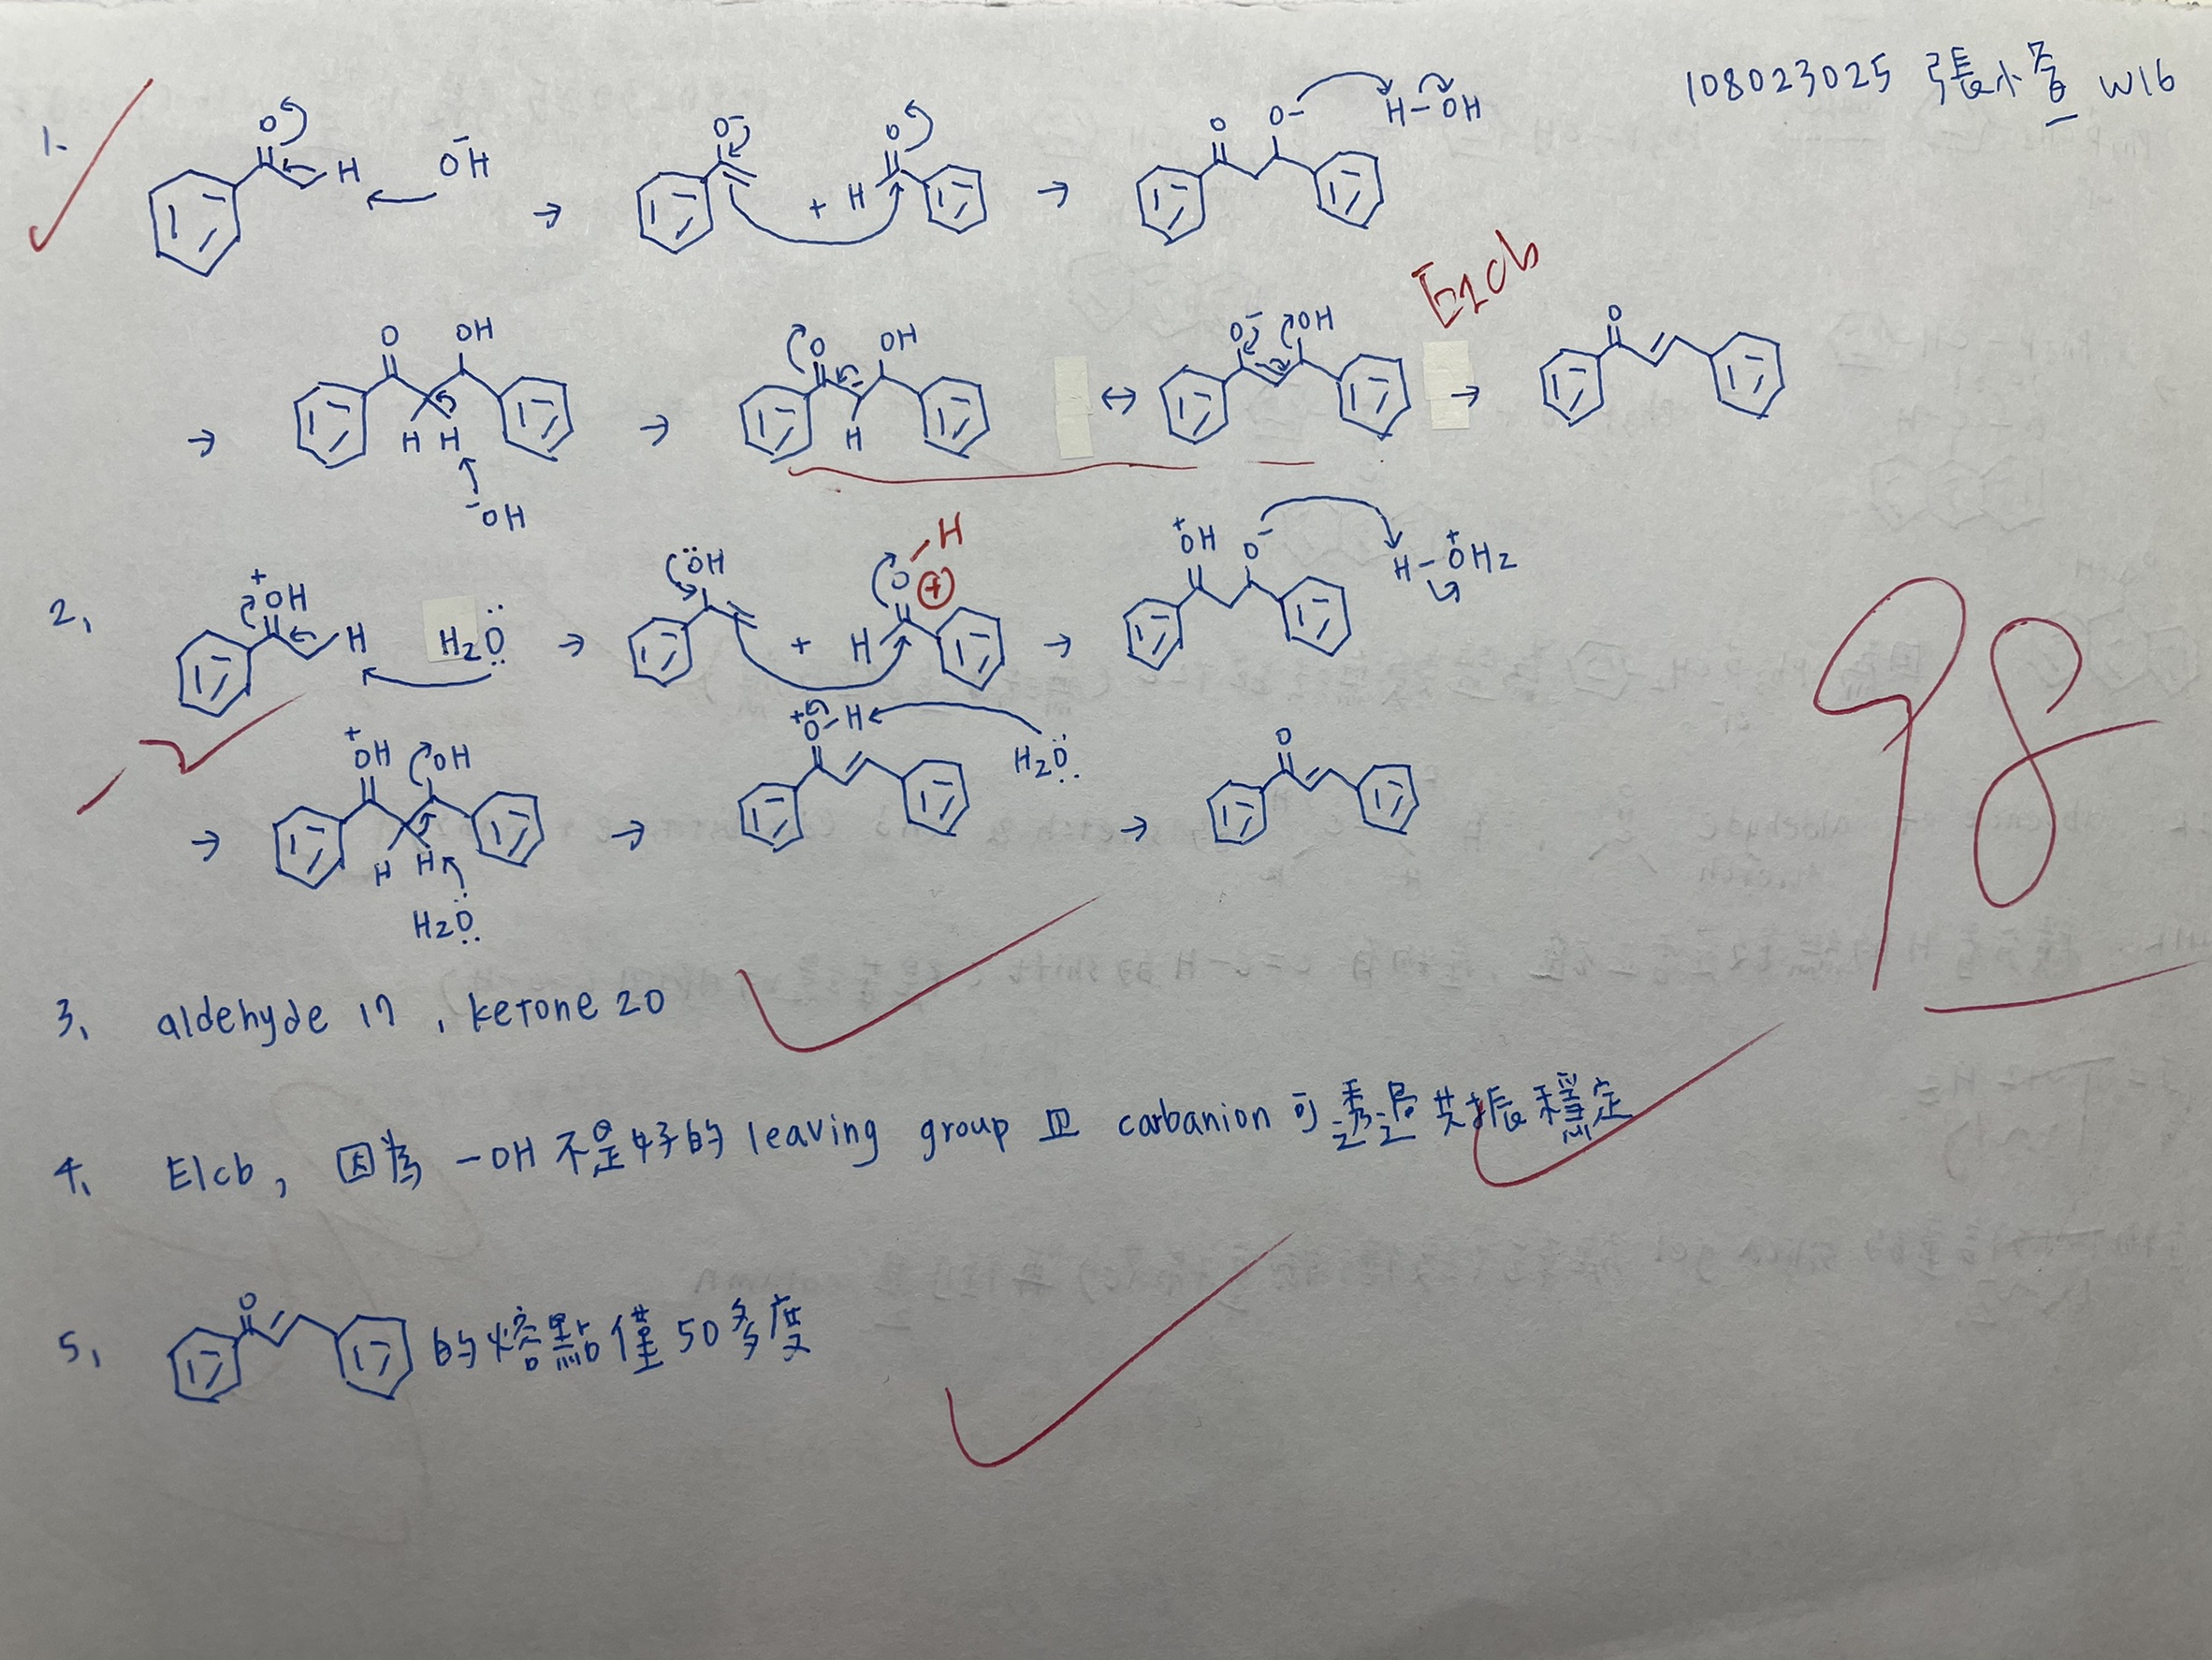 108023025 張小 W16
1.
O H ŌH O⁻ + H O O O⁻ H-OH
E1cb
O OH H H ⁻OH O OH H O⁻ OH O
2.
⁺OH H H2O ÖH + H O-H ⊕ ⁺OH O⁻ H-⁺OH2
⁺OH OH H H H2O ⁺O-H H2O O
3. aldehyde 17, ketone 20
4. E1cb, 因為 -OH 不是好的 leaving group 且 carbanion 可透過共振穩定
5. O 的熔點僅50多度
98